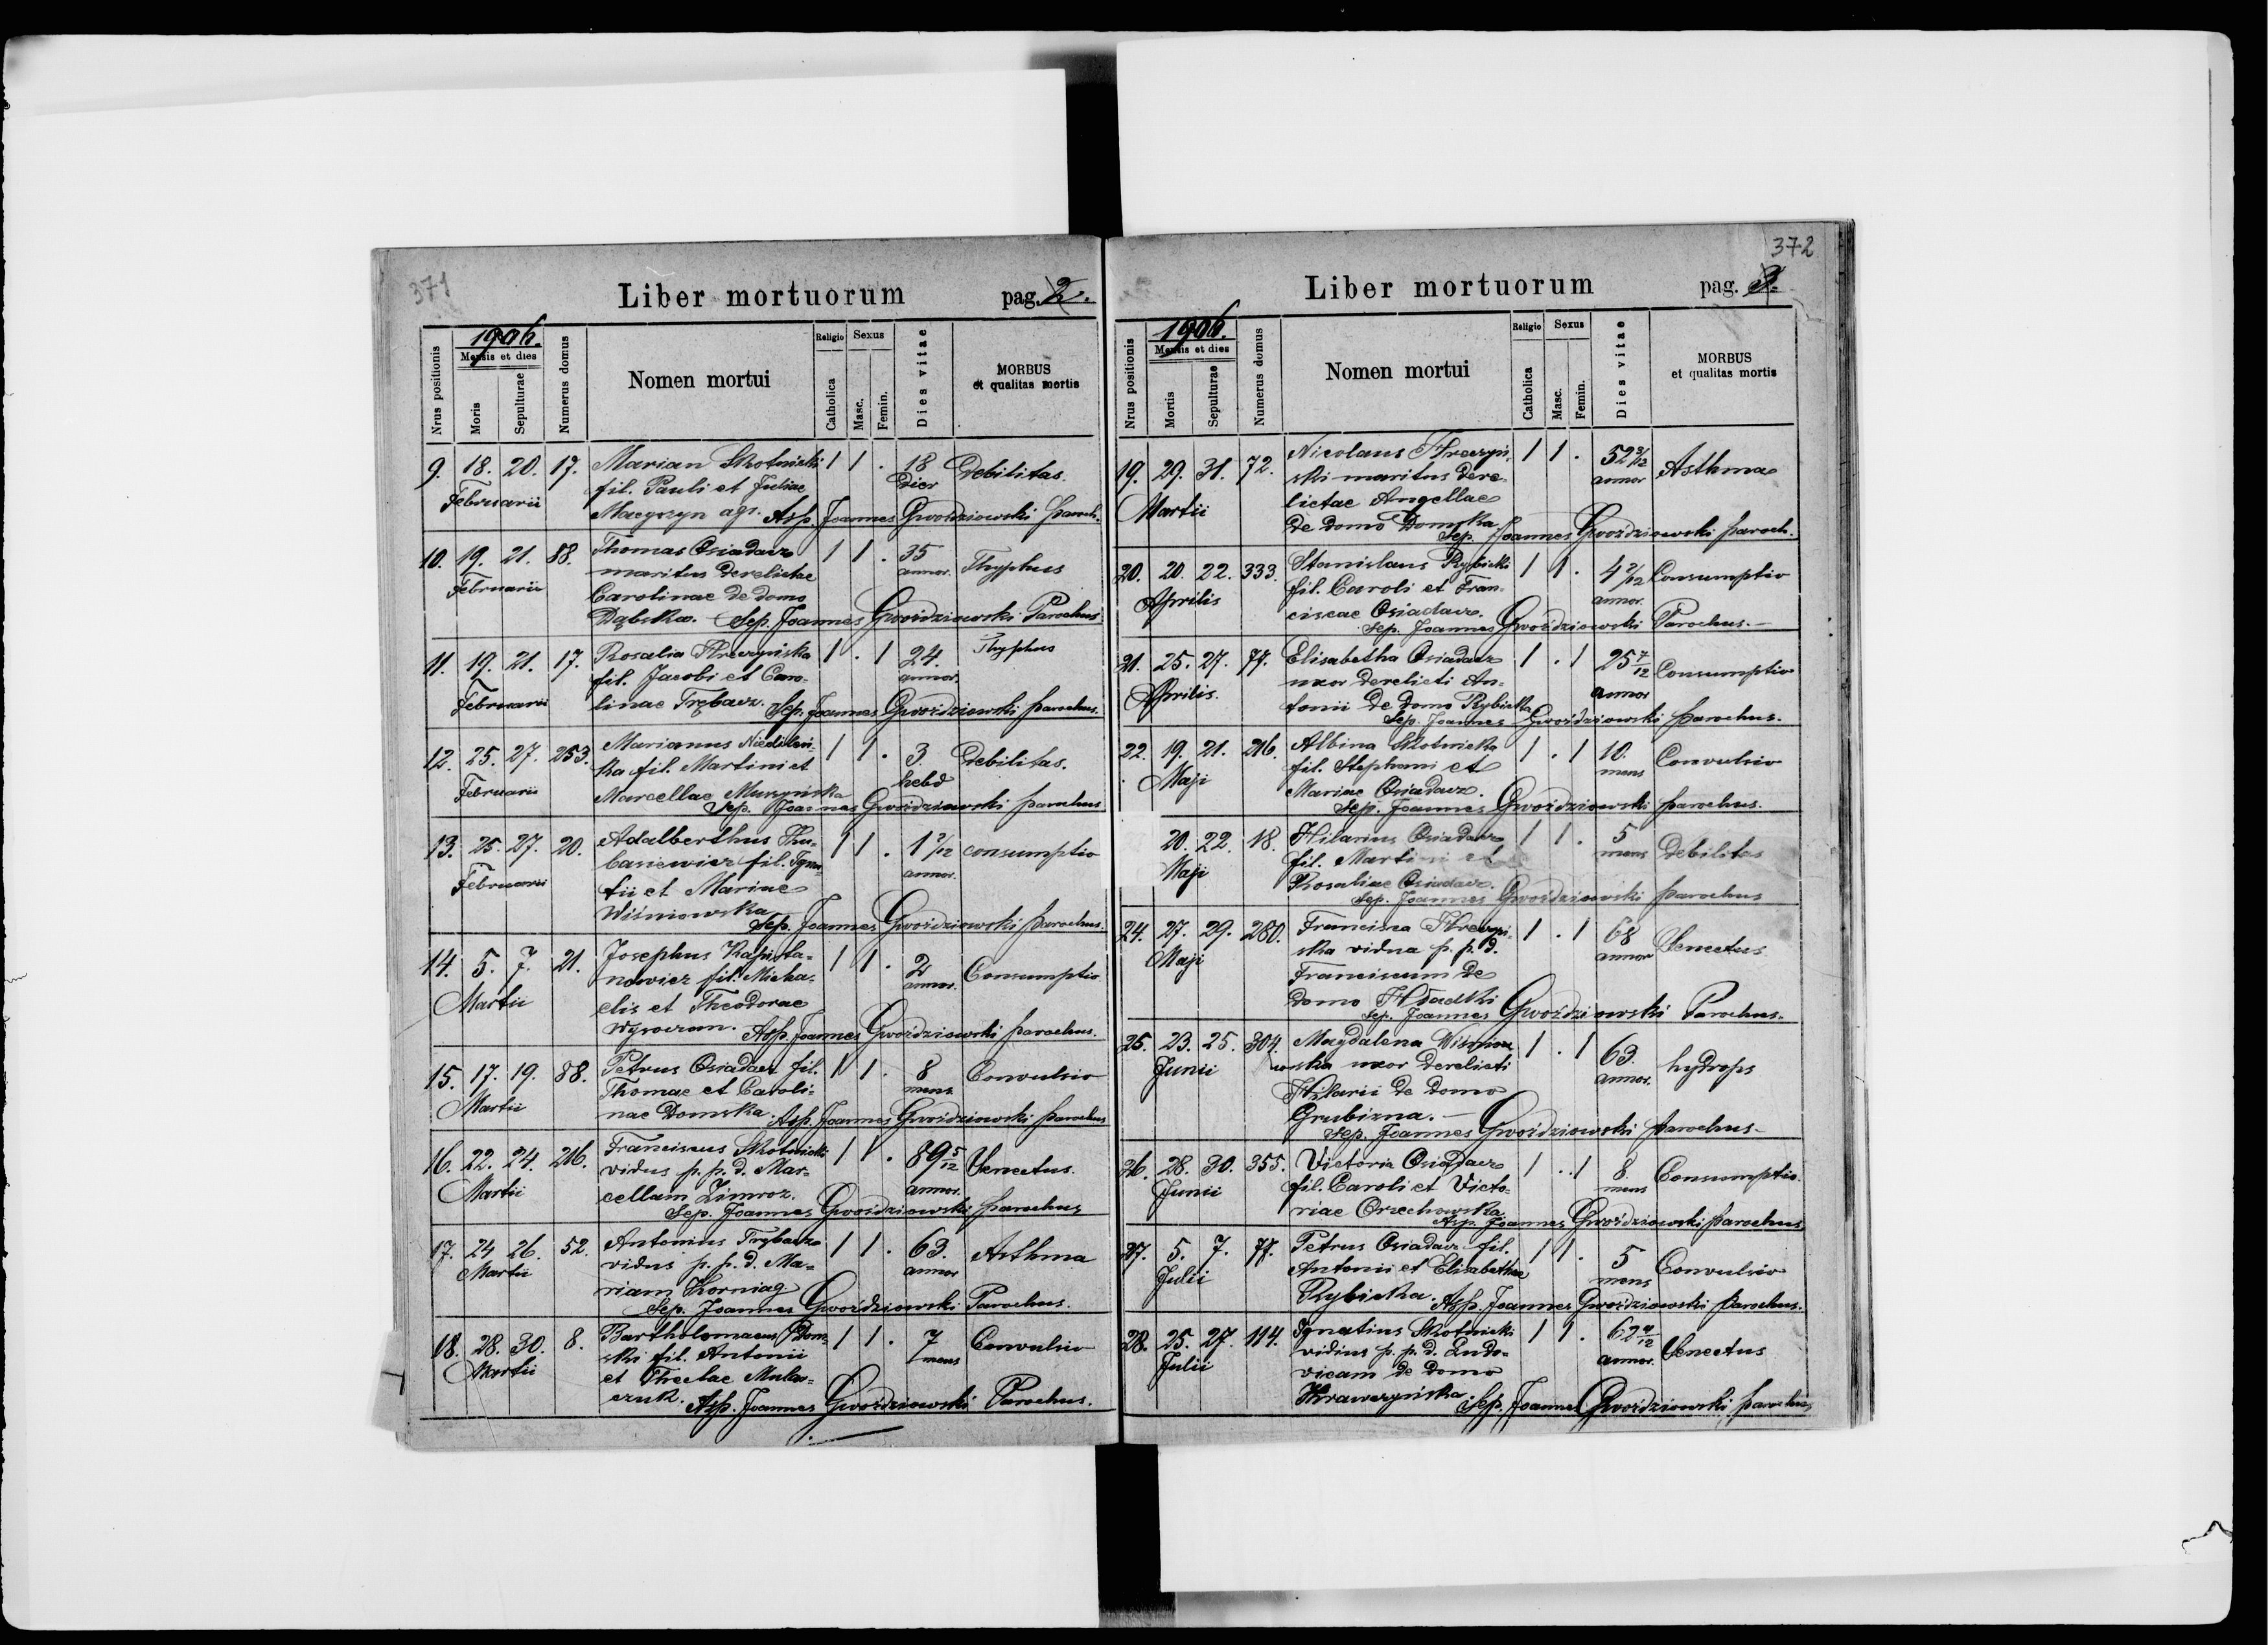 371
Liber mortuorum pag. 2.
1906.
Nrus positionis
Mensis et dies
Moris
Sepulturae
Numerus domus
Nomen mortui
Religio
Catholica
Sexus
Masc.
Femin.
Dies vitae
MORBUS
et qualitas mortis
9. 18. 20. 17. Marian Skotnicki 1 1 . 18 Debilitas.
Februarii fil. Pauli et Juliae Dier
Asp. Joannes Gwoździowski paroch.
10. 19. 21. 88. Thomas Osiadacz 1 1 . 35 Thyphus
Februarii maritus derelictae annor.
Carolinae de domo
Dąbska. Sep. Joannes Gwoździowski Parochus
11. 19. 21. 17. Rosalia 1 . 1 24. Thyphus
Februarii fil. Jacobi et Caro- annor.
linae Trębacz. Sep. Joannes Gwoździowski parochus.
12. 25. 27. 253. Marianus 1 1 . 3 Debilitas.
Februarii ka fil. Martini et hebd
Marcellae Muszyńska
Sep. Joannes Gwoździowski parochus
13. 25. 27. 20. Adalberthus 1 1 . 1 2/12 consumptio
Februarii fil. Igna- annor.
tii et Mariae
Wiśniowska
Sep. Joannes Gwoździowski parochus.
14. 5. 7. 21. Josephus Kapista- 1 1 . 2 Consumptio
Martii nowicz fil. Micha- annor.
elis et Theodorae
Asp. Joannes Gwoździowski parochus.
15. 17. 19. 88. Petrus Osiadacz fil. 1 1 . 8 Convulsio
Martii Thomae et Caroli- mens
nae Domska. Asp. Joannes Gwoździowski parochus
16. 22. 24. 216. Franciscus Skotnicki 1 1 . 89 5/12 Senectus.
Martii vidus p. p. d. Mar- annor.
cellam Zimroz.
Sep. Joannes Gwoździowski parochus
17. 24 26. 52. Antonius Trybacz 1 1 . 63. Asthma
Martii vidus p. p. d. Ma- annor
riam Korniag
Sep. Joannes Gwoździowski Parochus.
18. 28. 30. 8. Bartholomaeus Dom- 1 1 . 7 Convulsio
Martii ski fil. Antonii mens
et Theclae Mular-
czuk. Asp. Joannes Gwoździowski Parochus.
372
Liber mortuorum pag. 3.
1906.
Nrus positionis
Mensis et dies
Mortis
Sepulturae
Numerus domus
Nomen mortui
Religio
Catholica
Sexus
Masc.
Femin.
Dies vitae
MORBUS
et qualitas mortis
19. 29. 31. 72. Nicolaus 1 1 . 52 Asthma
Martii ski maritus dere- annor
lictae Angellae
de domo Domska
Sep. Joannes Gwoździowski paroch.
20. 20. 22. 333. Stanislaus Rybicki 1 1 . 4 2/12 Consumptio
Aprilis fil. Caroli et Fran- annor.
ciscae Osiadacz.
Sep. Joannes Gwoździowski Parochus.
21. 25. 27. 77. Elisabetha Osiadacz 1 . 1 25 7/12 Consumptio
Aprilis. uxor derelicti An- annor
tonii de domo Rybicka
Sep. Joannes Gwoździowski parochus.
22. 19. 21. 216. Albina Skotnicka 1 . 1 10. Convulsio
Maji fil. Stephani et mens
Mariae Osiadacz.
Sep. Joannes Gwoździowski parochus.
20. 22. 18. Hilarius Osiadacz 1 1 . 5 Debilitas
Maji fil. Martini et mens
Rosaliae Osiadacz.
Sep. Joannes Gwoździowski parochus
24. 27. 29. 280. Francisca 1 . 1 68 Senectus
Maji ska vidua p. p. d. annor
Franciscum de
domo
Sep. Joannes Gwoździowski Parochus.
25. 23. 25. 304. Magdalena Wiśnio- 1 . 1 63. hydrops
Junii wska uxor derelicti annor.
Hilarii de domo
Grubizna.
Sep. Joannes Gwoździowski parochus
26. 28. 30. 355. Victoria Osiadacz 1 . 1 8 Consumptio.
Junii fil. Caroli et Victo- mens
riae Orzechowska
Asp. Joannes Gwoździowski parochus
27. 5. 7. 77. Petrus Osiadacz fil. 1 1 . 5 Convulsio
Julii Antonii et Elisabethae mens
Rybicka. Asp. Joannes Gwoździowski parochus.
28. 25. 27. 114. Ignatius Skotnicki 1 1 . 62 Senectus
Julii vidius p. p. d. Ludo- annor.
vicam de domo
Krawczyńska. Sep. Joannes Gwoździowski parochus